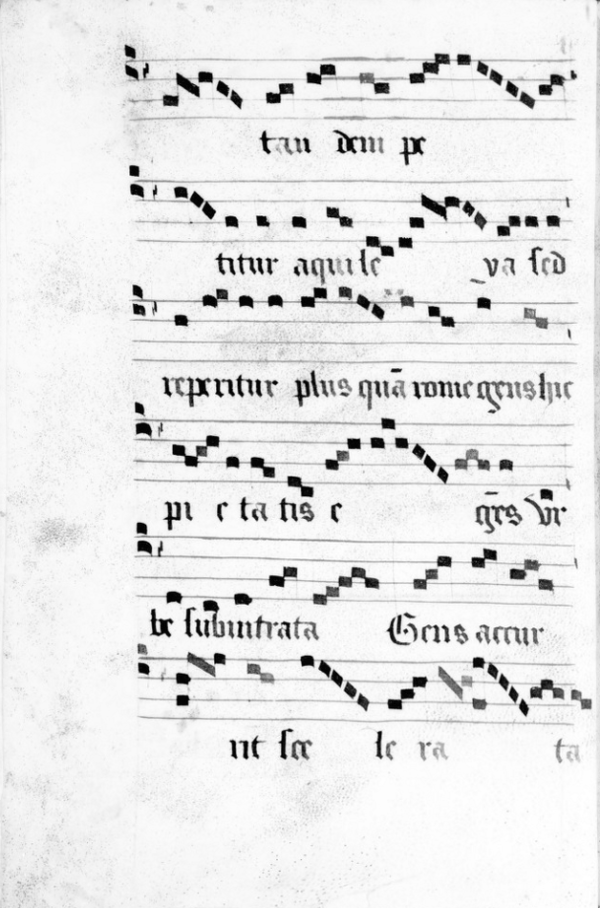 tan dem pe
titur aqui le va sed
reperitur plus quā rome gens hic
pi e ta tis e gēs Vr
be subintrata Gens accur
rit sce le ra ta